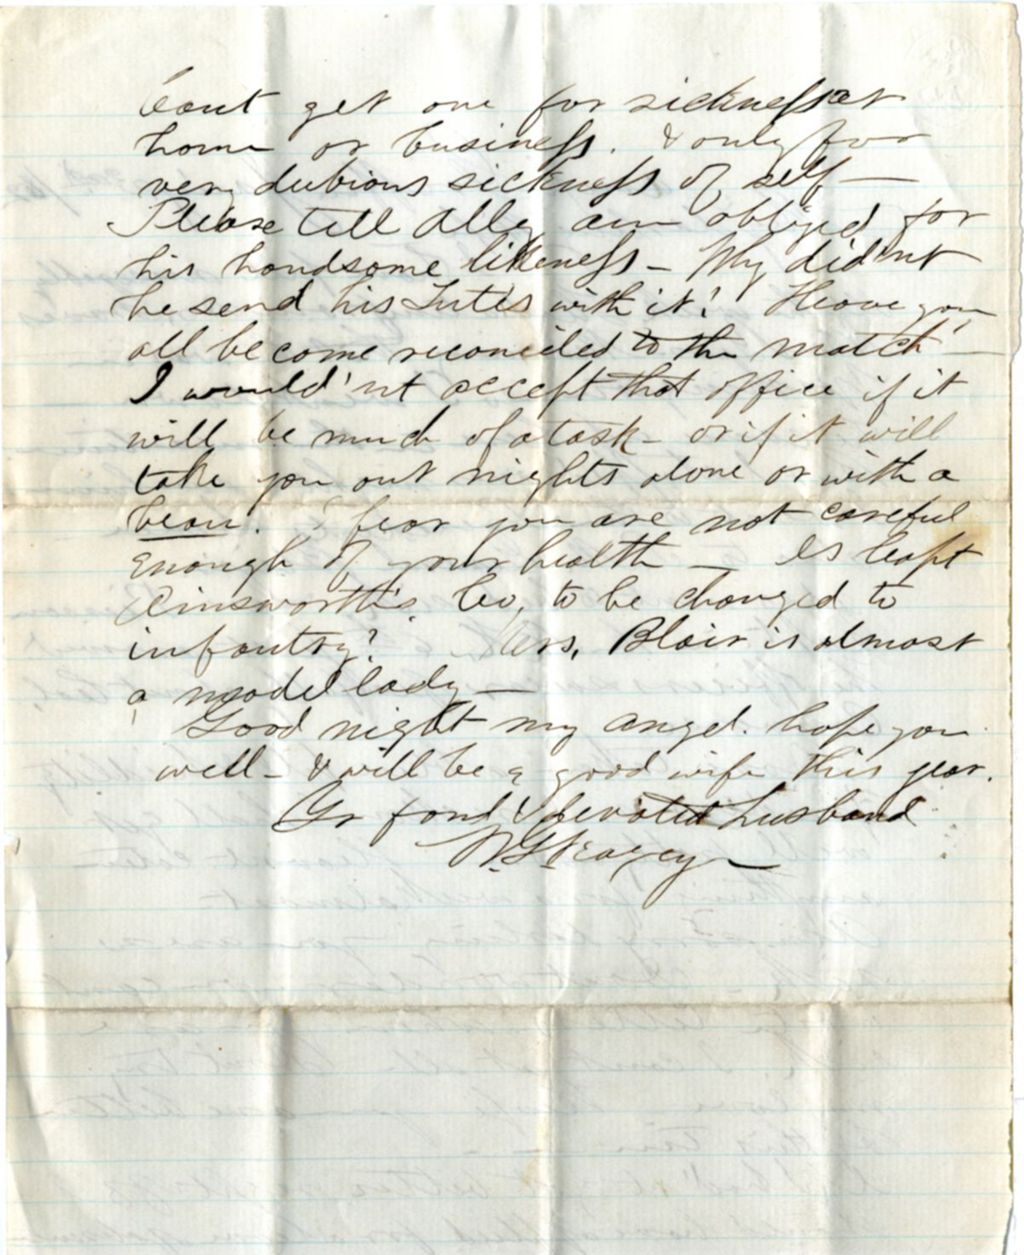 Cant get one for sickness at
home or business. & only for
very dubious sickness of self —
Please tell Ally am obliged for
his handsome likeness — Why did'nt
he send his with it? Have you
all become reconciled to the match —
I would'nt accept that office if it
will be much of a task — or if it will
take you out nights alone or with a
beau. I fear you are not careful
enough of your health — Is Capt
Ainsworth's Co, to be changed to
infantry? Mrs. Blair is almost
a model lady —
Good night my angel. hope you
well — & will be a good wife this year.
Yr fond & devoted husband